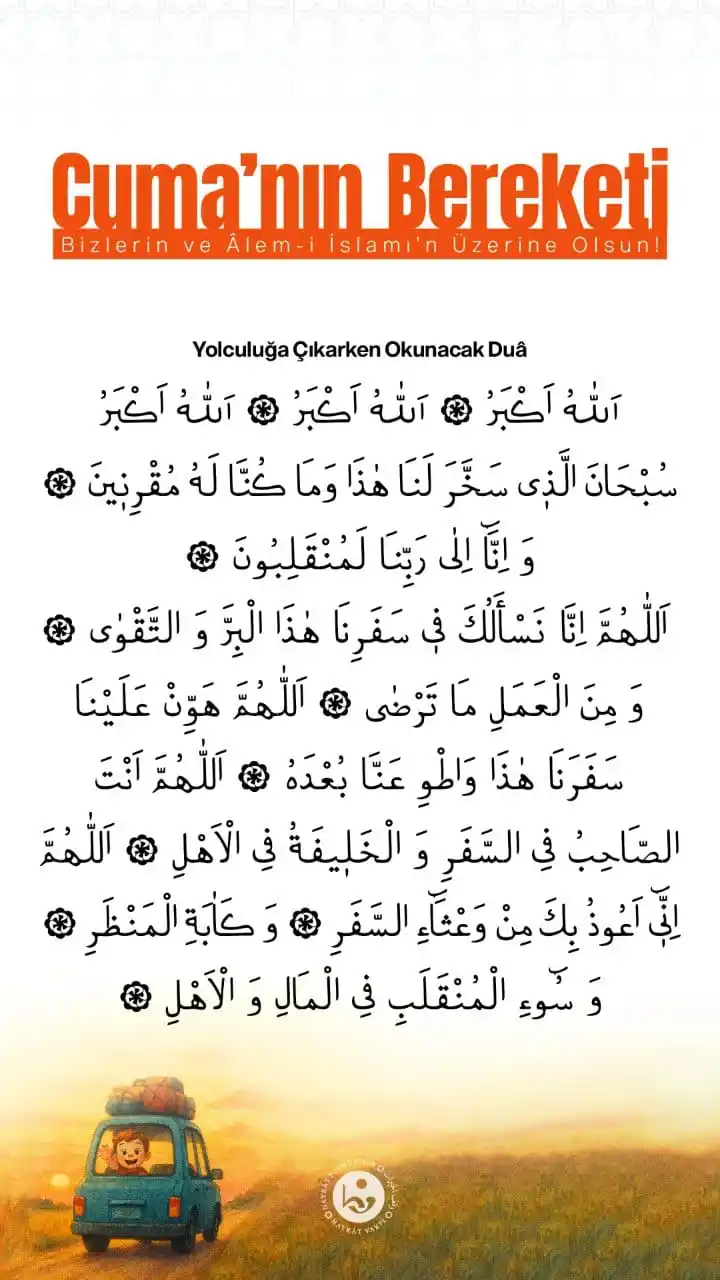 Cuma’nın Bereketi
Bizlerin ve Âlem-i İslamı’n Üzerine Olsun!
Yolculuğa Çıkarken Okunacak Duâ
اَللّٰهُ اَكْبَرُ ۞ اَللّٰهُ اَكْبَرُ ۞ اَللّٰهُ اَكْبَرُ
سُبْحَانَ الَّذٖى سَخَّرَ لَنَا هٰذَا وَمَا كُنَّا لَهُ مُقْرِنٖينَ ۞
وَ اِنَّٓا اِلٰى رَبِّنَا لَمُنْقَلِبُونَ ۞
اَللّٰهُمَّ اِنَّا نَسْأَلُكَ فٖى سَفَرِنَا هٰذَا الْبِرَّ وَ التَّقْوٰى ۞
وَ مِنَ الْعَمَلِ مَا تَرْضٰى ۞ اَللّٰهُمَّ هَوِّنْ عَلَيْنَا
سَفَرَنَا هٰذَا وَاطْوِ عَنَّا بُعْدَهُ ۞ اَللّٰهُمَّ اَنْتَ
الصَّاحِبُ فِى السَّفَرِ وَ الْخَلٖيفَةُ فِى الْاَهْلِ ۞ اَللّٰهُمَّ
اِنّٖٓى اَعُوذُ بِكَ مِنْ وَعْثَٓاءِ السَّفَرِ ۞ وَ كَاٰبَةِ الْمَنْظَرِ ۞
وَ سُٓوءِ الْمُنْقَلَبِ فِى الْمَالِ وَ الْاَهْلِ ۞
HAYRÂT VAKFI